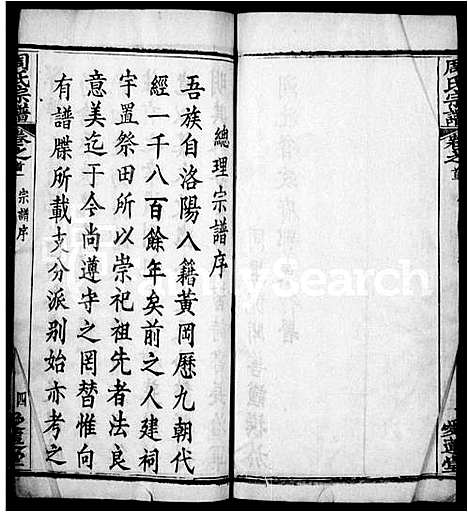 周氏宗譜
卷之首
總理宗譜序
吾族自洛陽入籍黃岡歷九朝代
經一千八百餘年矣前之人建祠
宇置祭田所以崇祀祖先者法良
意美迄于今尚遵守之罔替惟向
有譜牒所載支分派别始亦考之
周氏宗譜
卷之首
宗譜序
四
愛蓮堂
愛蓮堂
FamilySearch